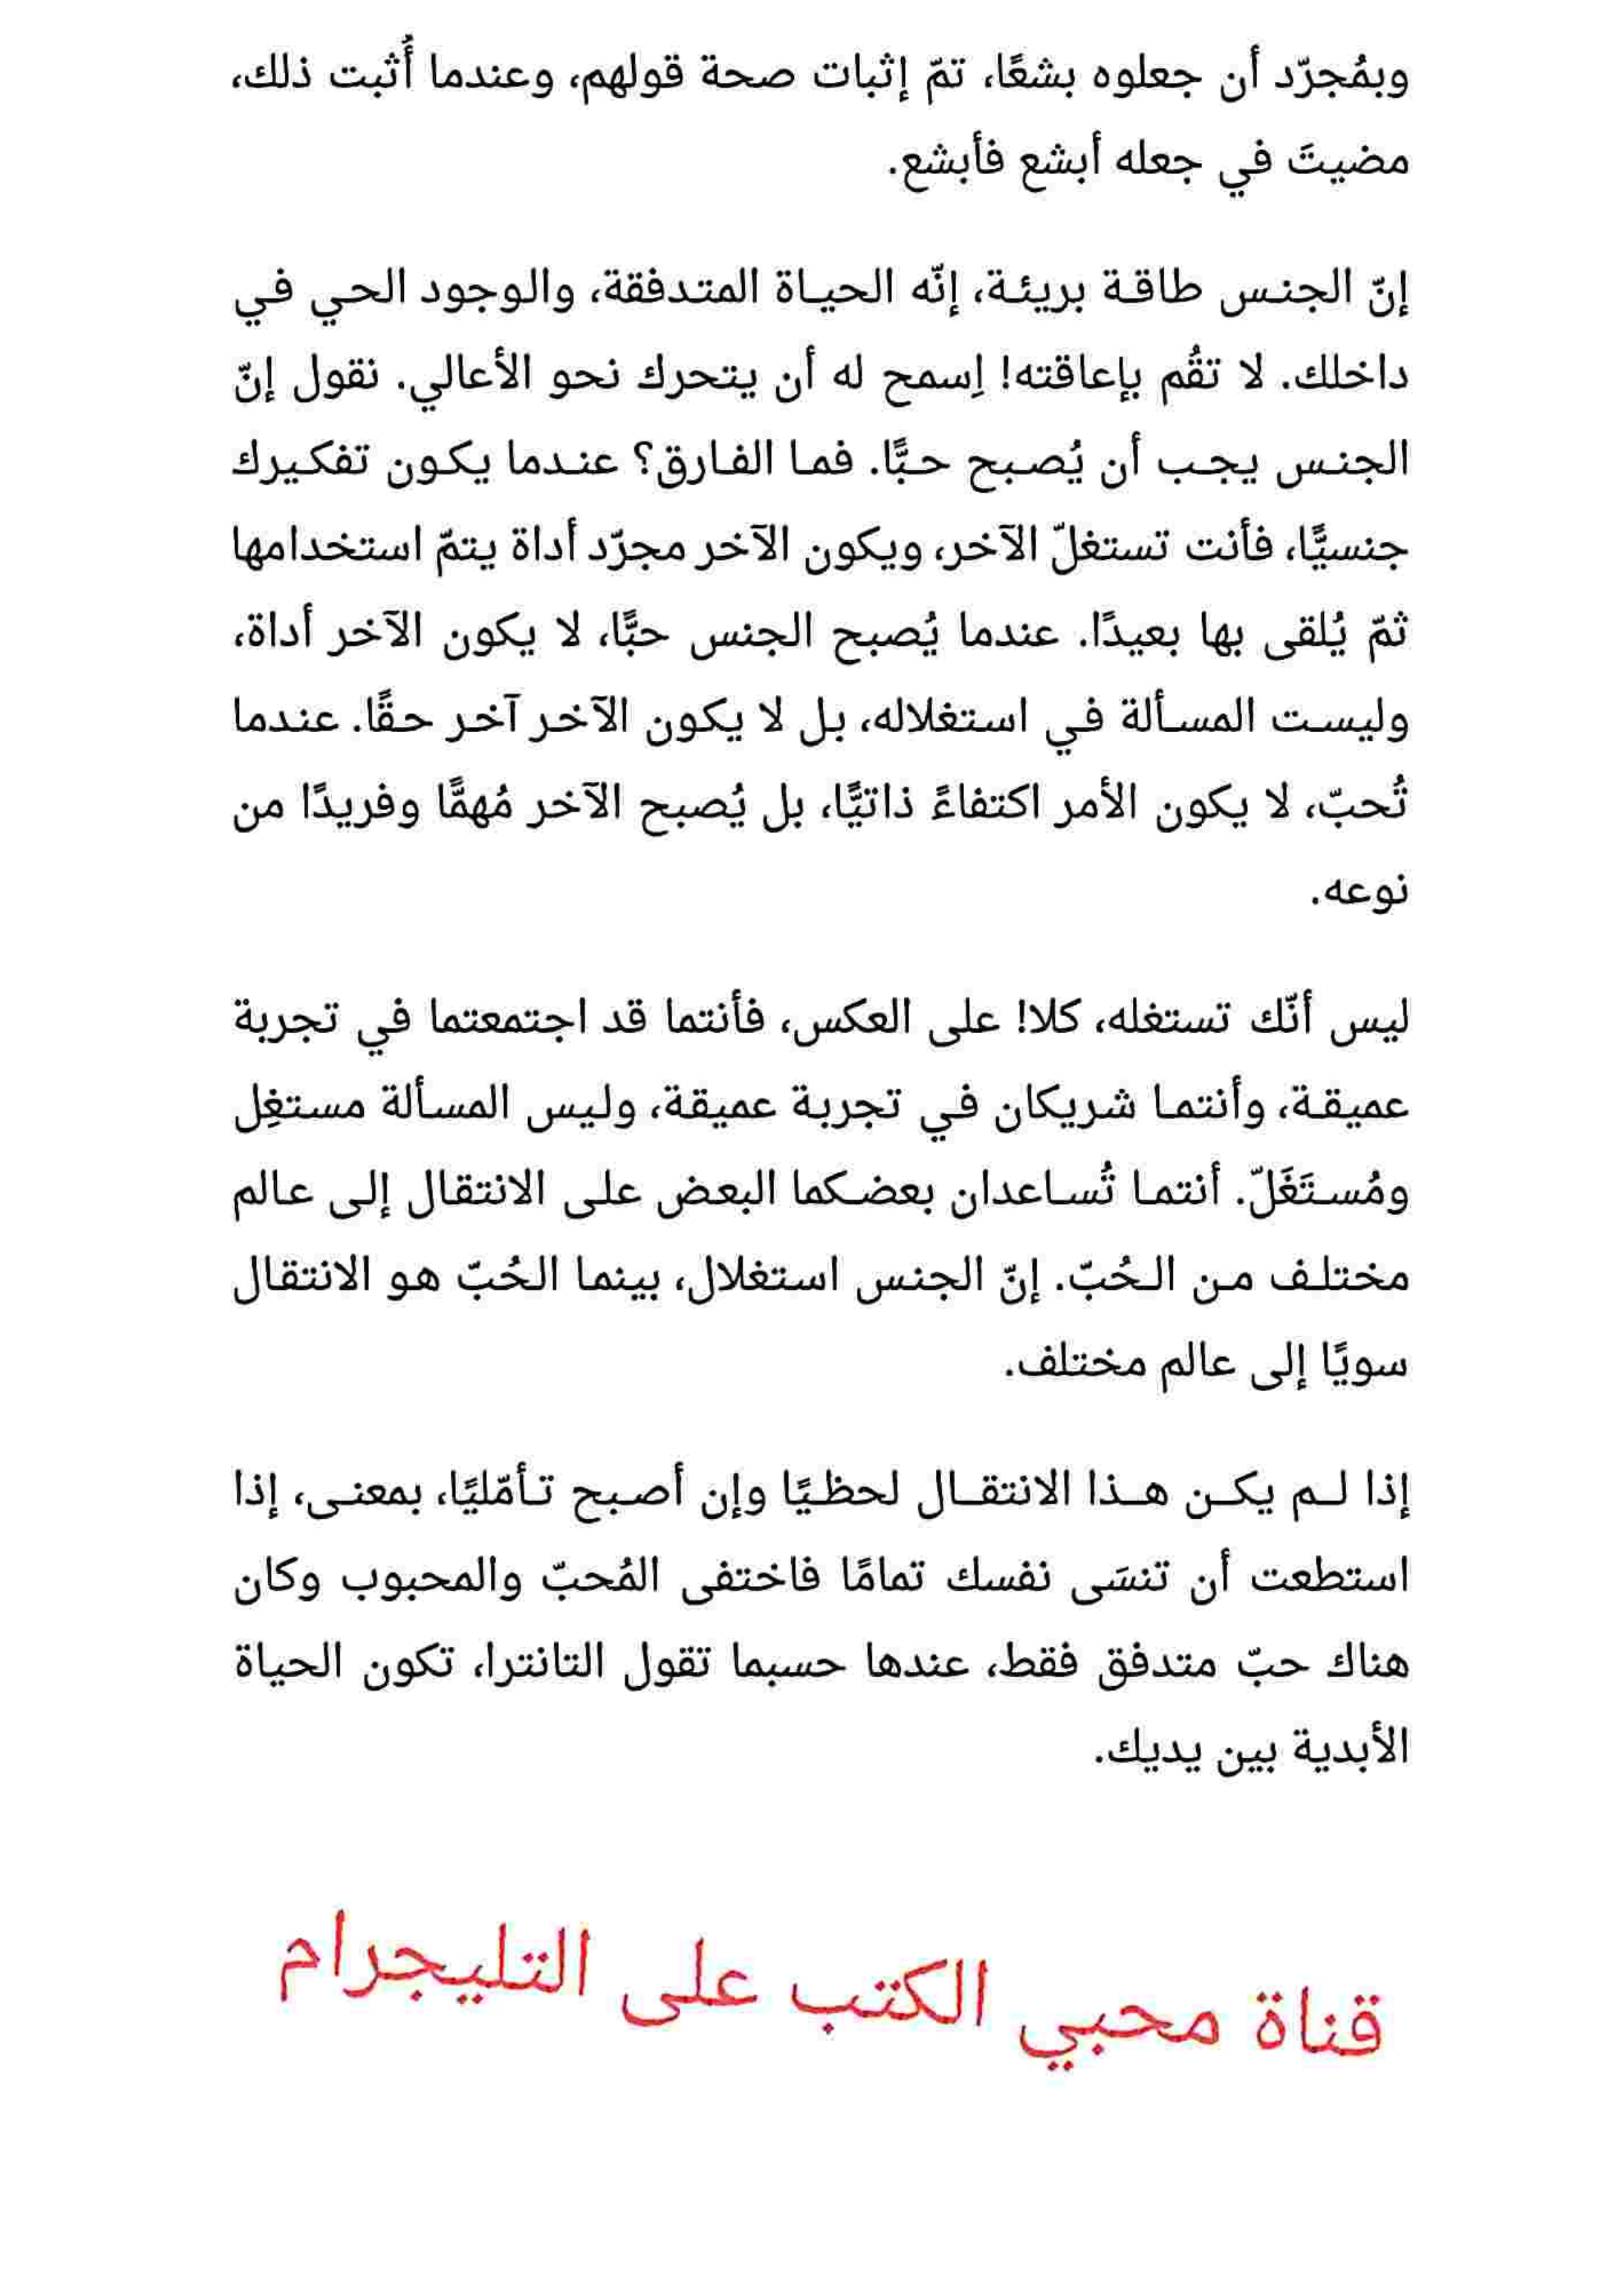 وبمُجرّد أن جعلوه بشعًا، تمّ إثبات صحة قولهم، وعندما أُثبت ذلك،
مضيتَ في جعله أبشع فأبشع.
إنّ الجنس طاقة بريئة، إنّه الحياة المتدفقة، والوجود الحي في
داخلك. لا تقُم بإعاقته! اِسمح له أن يتحرك نحو الأعالي. نقول إنّ
الجنس يجب أن يُصبح حبًّا. فما الفارق؟ عندما يكون تفكيرك
جنسيًّا، فأنت تستغلّ الآخر، ويكون الآخر مجرّد أداة يتمّ استخدامها
ثمّ يُلقى بها بعيدًا. عندما يُصبح الجنس حبًّا، لا يكون الآخر أداة،
وليست المسألة في استغلاله، بل لا يكون الآخر آخر حقًّا. عندما
تُحبّ، لا يكون الأمر اكتفاءً ذاتيًّا، بل يُصبح الآخر مُهمًّا وفريدًا من
نوعه.
ليس أنّك تستغله، كلا! على العكس، فأنتما قد اجتمعتما في تجربة
عميقة، وأنتما شريكان في تجربة عميقة، وليس المسألة مستغِل
ومُستَغَلّ. أنتما تُساعدان بعضكما البعض على الانتقال إلى عالم
مختلف من الحُبّ. إنّ الجنس استغلال، بينما الحُبّ هو الانتقال
سويًا إلى عالم مختلف.
إذا لم يكن هذا الانتقال لحظيًا وإن أصبح تأمّليًا، بمعنى، إذا
استطعت أن تنسَى نفسك تمامًا فاختفى المُحبّ والمحبوب وكان
هناك حبّ متدفق فقط، عندها حسبما تقول التانترا، تكون الحياة
الأبدية بين يديك.
قناة محبي الكتب على التليجرام